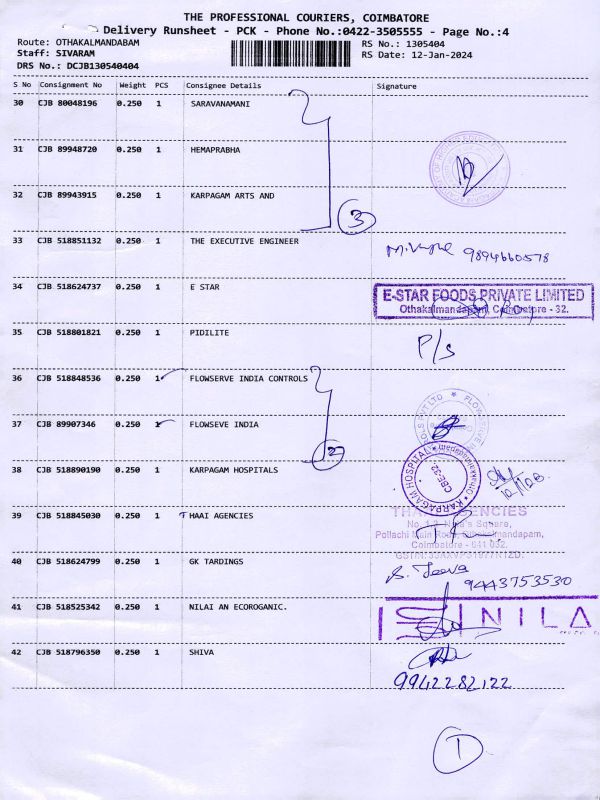 THE PROFESSIONAL COURIERS, COIMBATORE
Delivery Runsheet - PCK - Phone No.:0422-3505555 - Page No.:4
Route: OTHAKALMANDABAM
RS No.: 1305404
Staff: SIVARAM
RS Date: 12-Jan-2024
DRS No.: DCJB130540404
S No Consignment No Weight PCS Consignee Details Signature
30 CJB 80048196 0.250 1 SARAVANAMANI
31 CJB 89948720 0.250 1 HEMAPRABHA
32 CJB 89943915 0.250 1 KARPAGAM ARTS AND
3
33 CJB 518851132 0.250 1 THE EXECUTIVE ENGINEER
9894660578
34 CJB 518624737 0.250 1 E STAR
E-STAR FOODS PRIVATE LIMITED
Othakalmandapam, Coimbatore - 32.
35 CJB 518801821 0.250 1 PIDILITE
P/S
36 CJB 518848536 0.250 1 FLOWSERVE INDIA CONTROLS
37 CJB 89907346 0.250 1 FLOWSEVE INDIA
2
38 CJB 518890190 0.250 1 KARPAGAM HOSPITALS
KARPAGAM HOSPITAL
CBE-32
39 CJB 518845030 0.250 1 THAAI AGENCIES
Pollachi Main Road, Othakalmandapam,
Coimbatore - 641 032.
40 CJB 518624799 0.250 1 GK TARDINGS
S. Jeeva
9443753530
41 CJB 518525342 0.250 1 NILAI AN ECOROGANIC.
NILA
42 CJB 518796350 0.250 1 SHIVA
9942282122
1